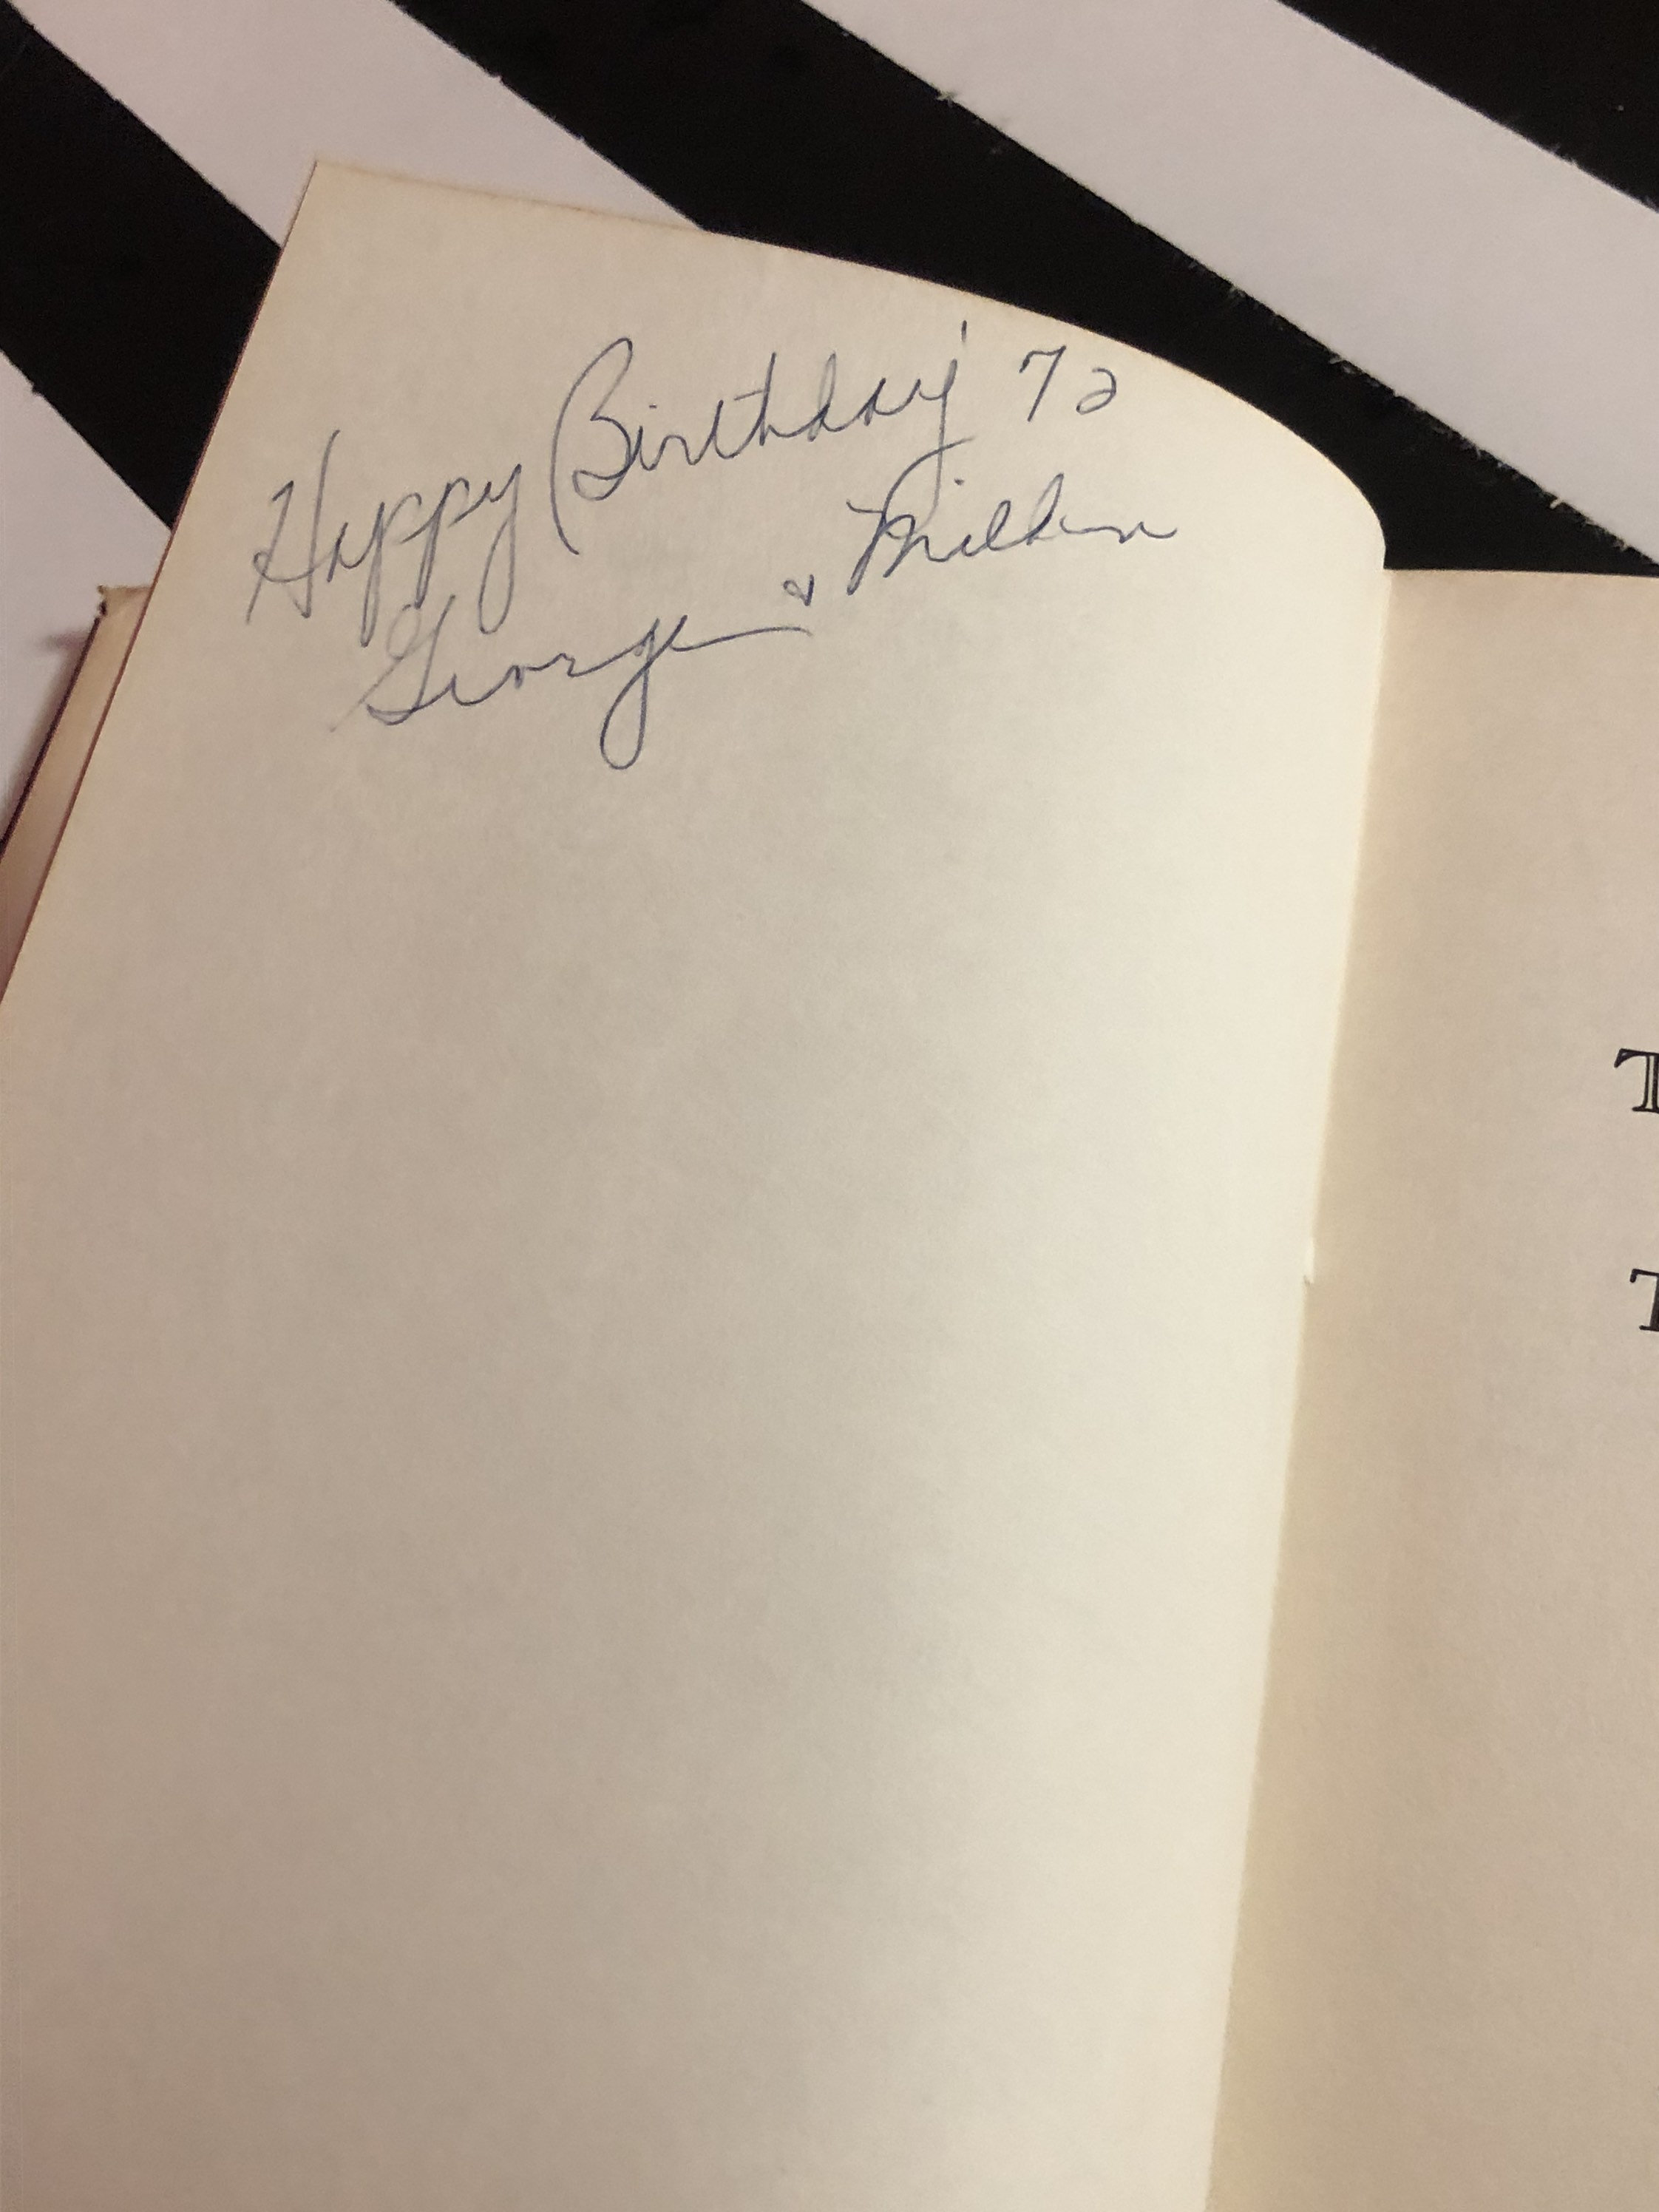 Happy Birthday '72
George &
T
T